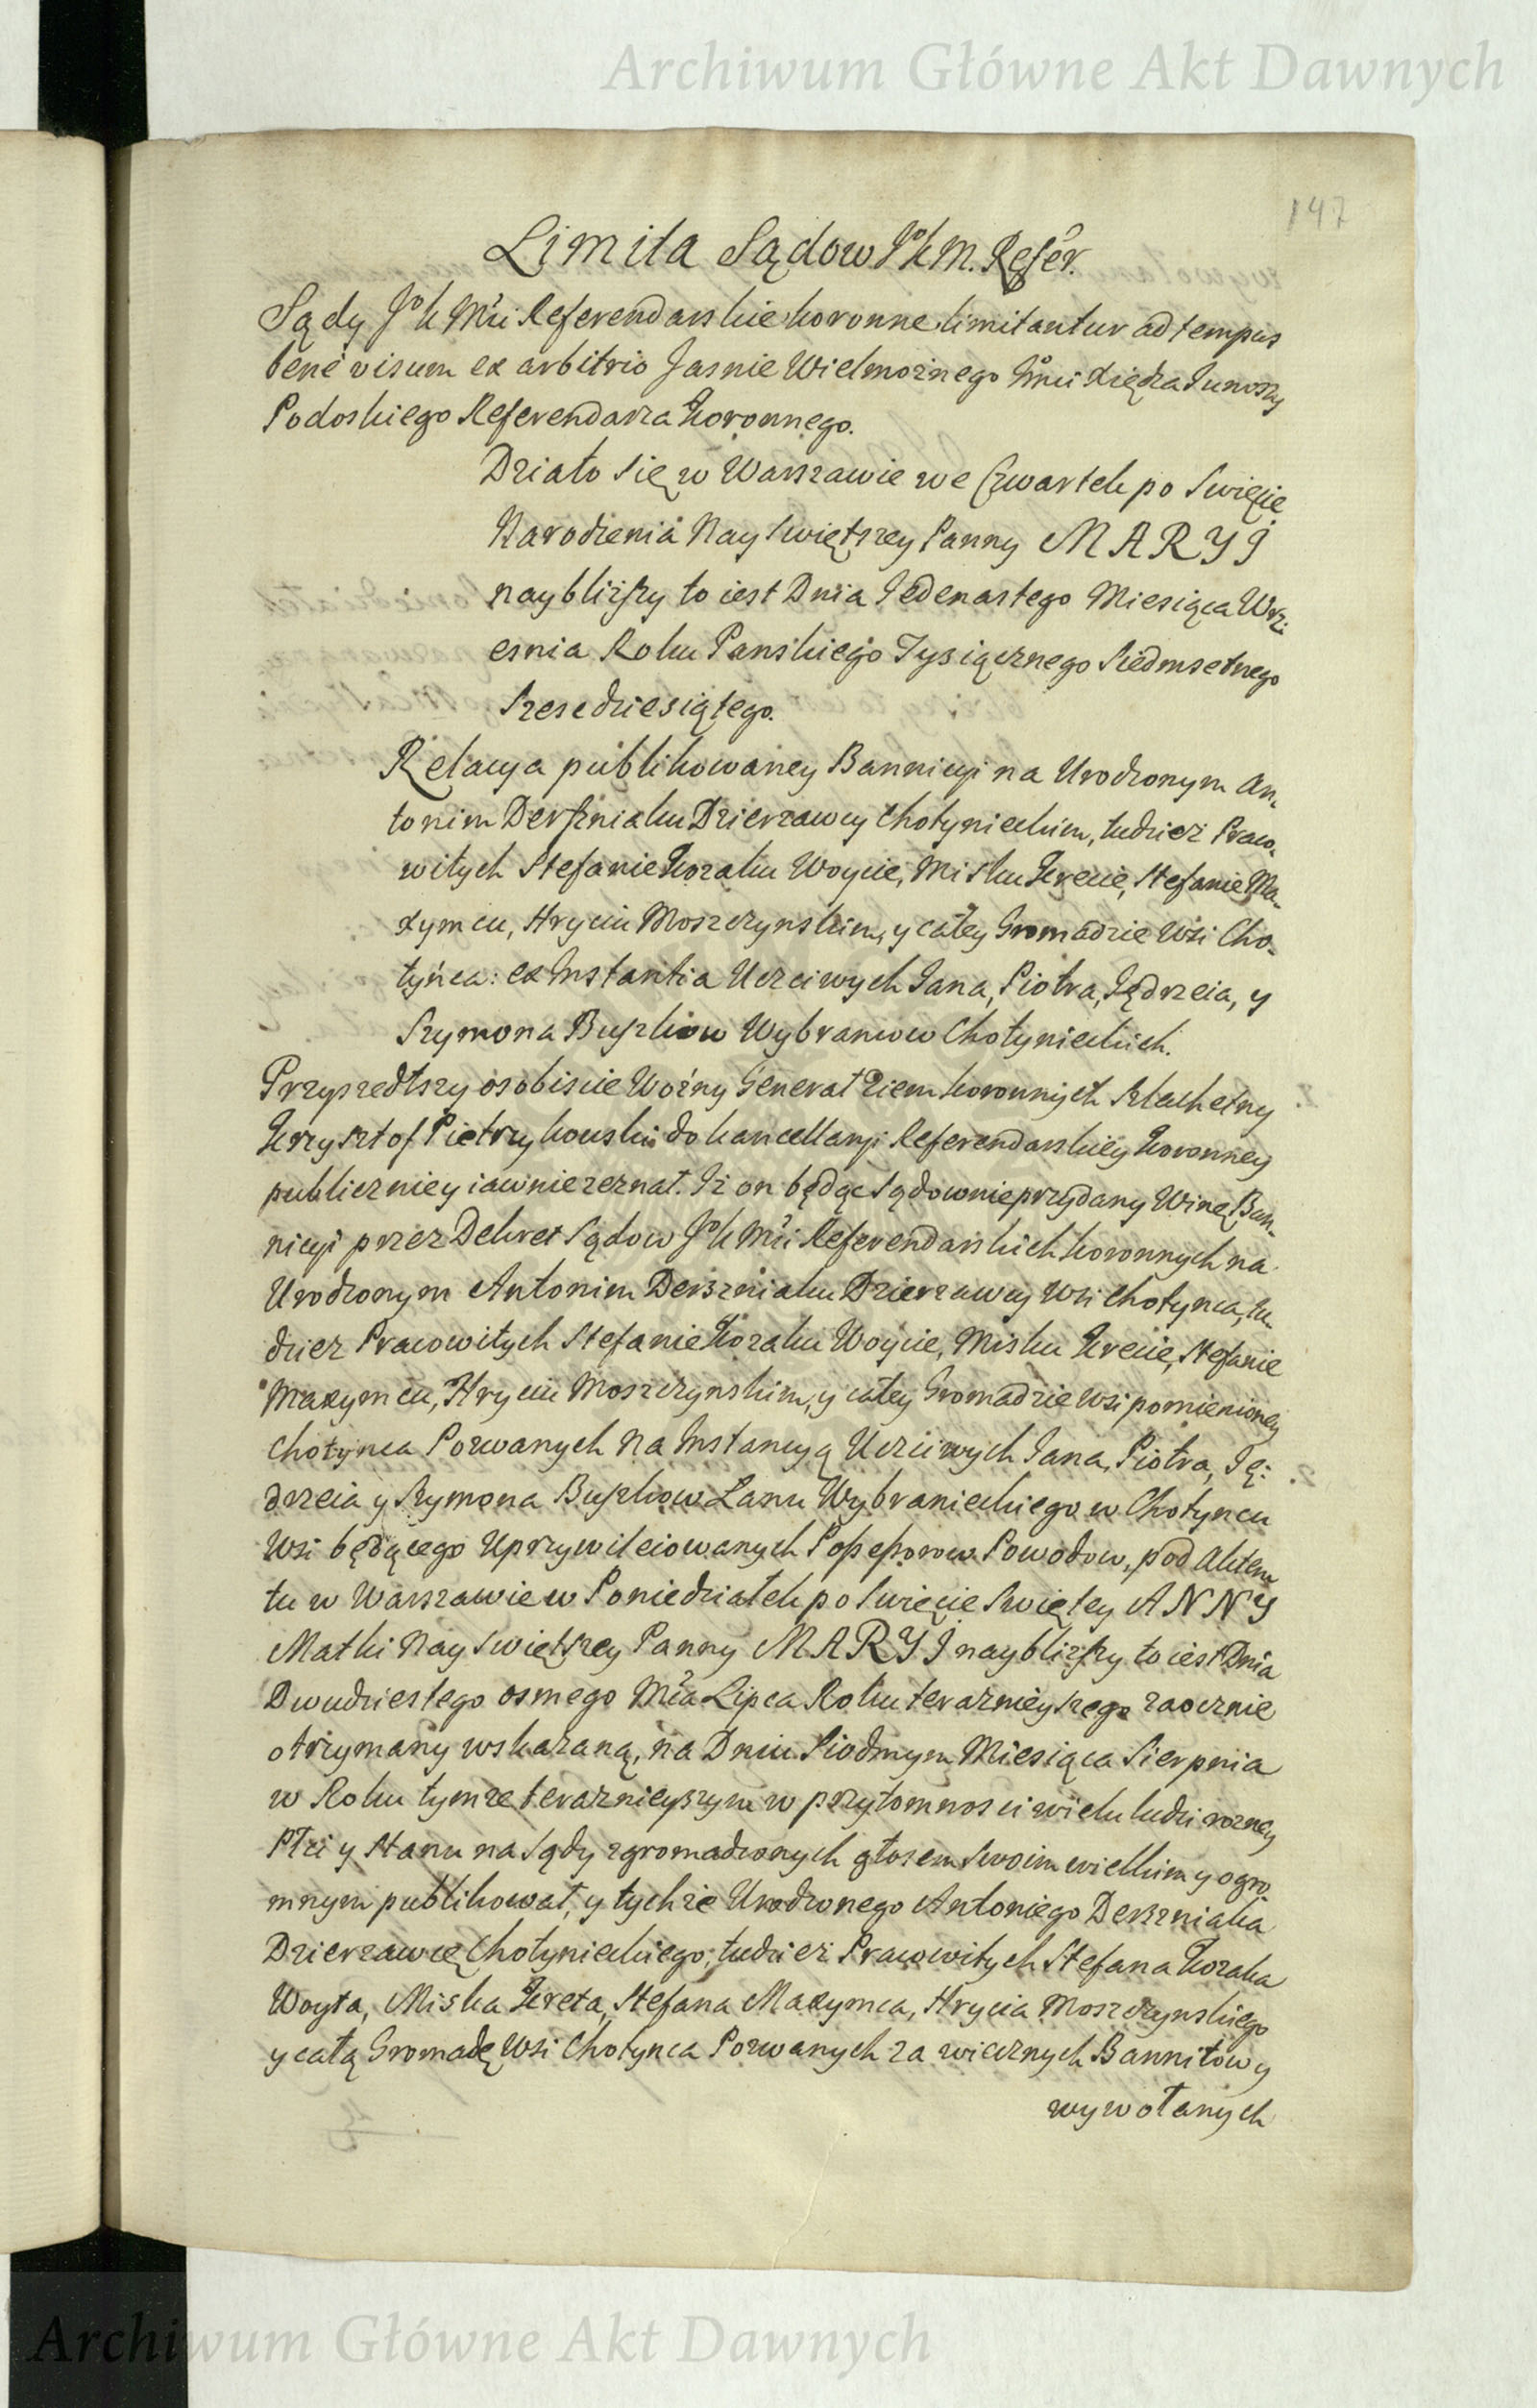 Archiwum Główne Akt Dawnych
147
Limita Sądow JKM. Refer.
Sądy JK Mci Referendarskie koronne limitantur ad tempus
bene visum ex arbitrio Jasnie Wielmożnego Jmci Xiędza Junoszy
Podoskiego Referendarza Koronnego.
Działo się w Warszawie we Czwartek po Swięcie
Narodzenia Nayswiętszey Panny MARYI
naybliższy to iest Dnia Jedenastego Miesiąca Wrz-
esnia Roku Panskiego Tysiącznego Siedmsetnego
Szescdziesiątego.
Relacya publikowaney Bannicyi na Urodzonym An-
tonim Derszniaku Dzierzawcy Chotynieckim, tudzież Praco-
witych Stefanie Kozaku Woycie, Misku Krecie, Stefanie Ma-
xymcu, Hryciu Moszczynskim, y całey Gromadzie Wsi Cho-
tyńca: ex Instantia Uczciwych Jana, Piotra, Jędrzeia, y
Szymona Buszkow Wybrancow Chotynieckich.
Przyszedłszy osobiscie Woźny Generał Ziem koronnych Szlachetny
Krzysztof Pietrzykowski do kancellaryi Referendarskiey Koronney
publicznie y iawnie zeznał. Iż on będąc Sądownie przydany Winę Ban-
nicyi przez Dekret Sądow JK Mci Referendarskich koronnych na
Urodzonym Antonim Derszniaku Dzierzawcy Wsi Chotynca, tu-
dziez Pracowitych Stefanie Kozaku Woycie, Misku Krecie, Stefanie
Maxymcu, Hryciu Moszczynskim, y całey Gromadzie Wsi pomienioney
Chotynca Pozwanych na Instancyą Uczciwych Jana, Piotra, Ję-
drzeia y Szymona Buszkow Łanu Wybranieckiego w Chotyncu
Wsi będącego Uprzywileiowanych Possessorow Powodow, pod Aktem
tu w Warszawie w Poniedziałek po Swięcie Swiętey ANNY
Matki Nayswiętszey Panny MARYI naybliższy to iest Dnia
Dwudziestego osmego Mca Lipca Roku teraznieyszego zaocznie
otrzymany wskazaną, na Dniu Siodmym Miesiąca Sierpnia
w Roku tymze teraznieyszym w przytomnosci wielu ludzi rozney
Płci y Stanu na Sądy zgromadzonych głosem Swoim wielkim y ogro-
mnym publikował, y tychże Urodzonego Antoniego Derszniaka
Dzierzawcę Chotynieckiego, tudzież Pracowitych Stefana Kozaka
Woyta, Miska Kreta, Stefana Maxymca, Hrycia Moszczynskiego
y całą Gromadę Wsi Chotynca Pozwanych za wiecznych Bannitow y
wywołanych
Archiwum Główne Akt Dawnych